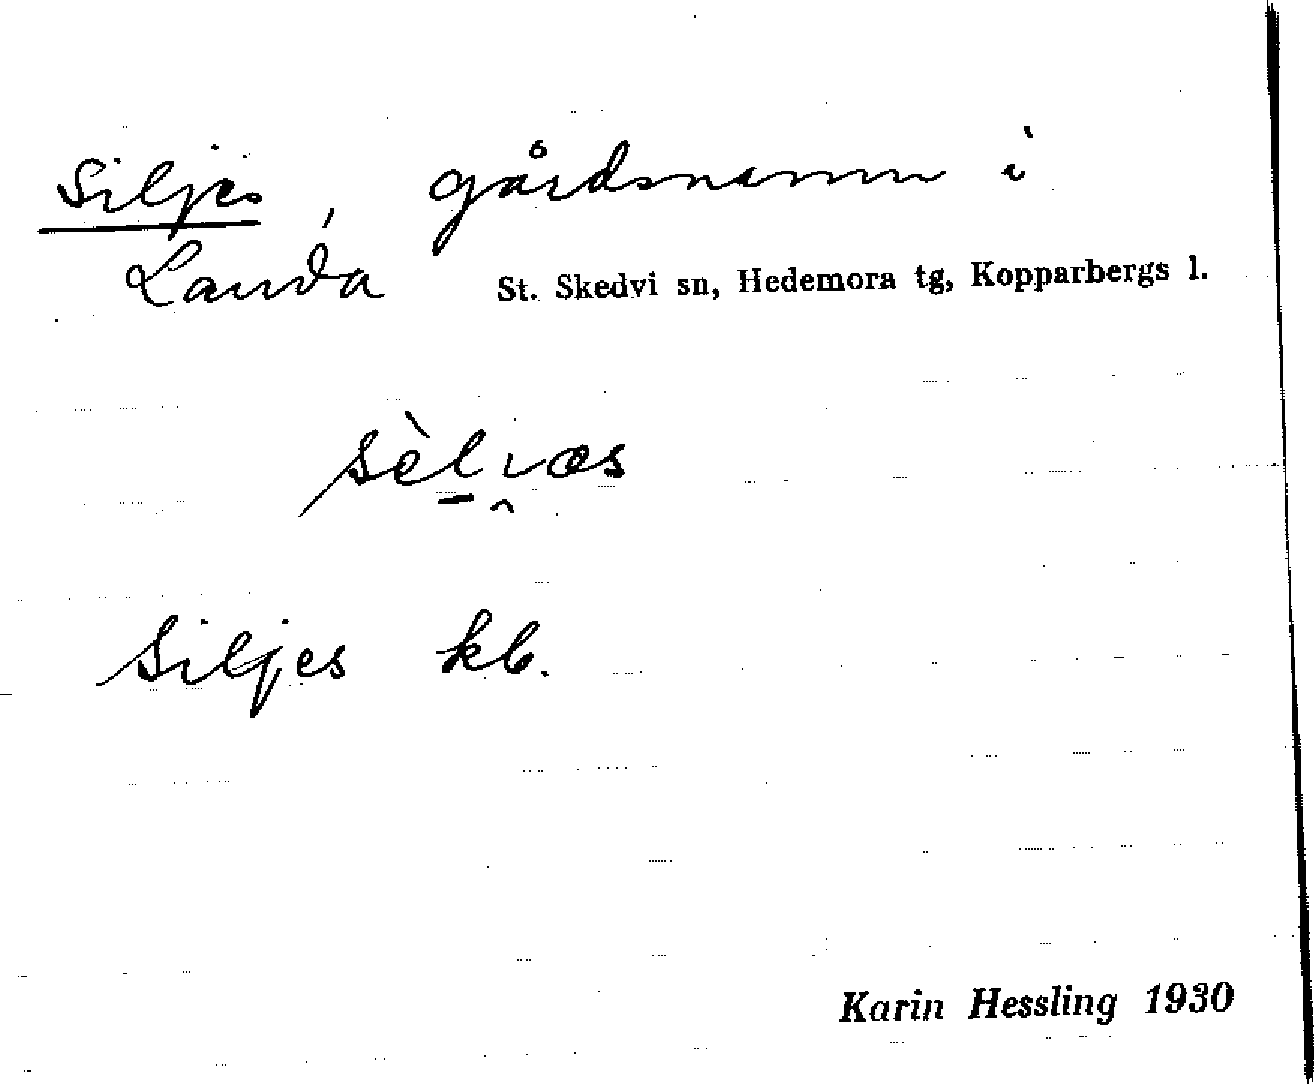 Siljes, gårdsnamn i
Landa St. Skedvi sn, Hedemora tg, Kopparbergs l.
Siljes kb.
Karin Hessling 1930